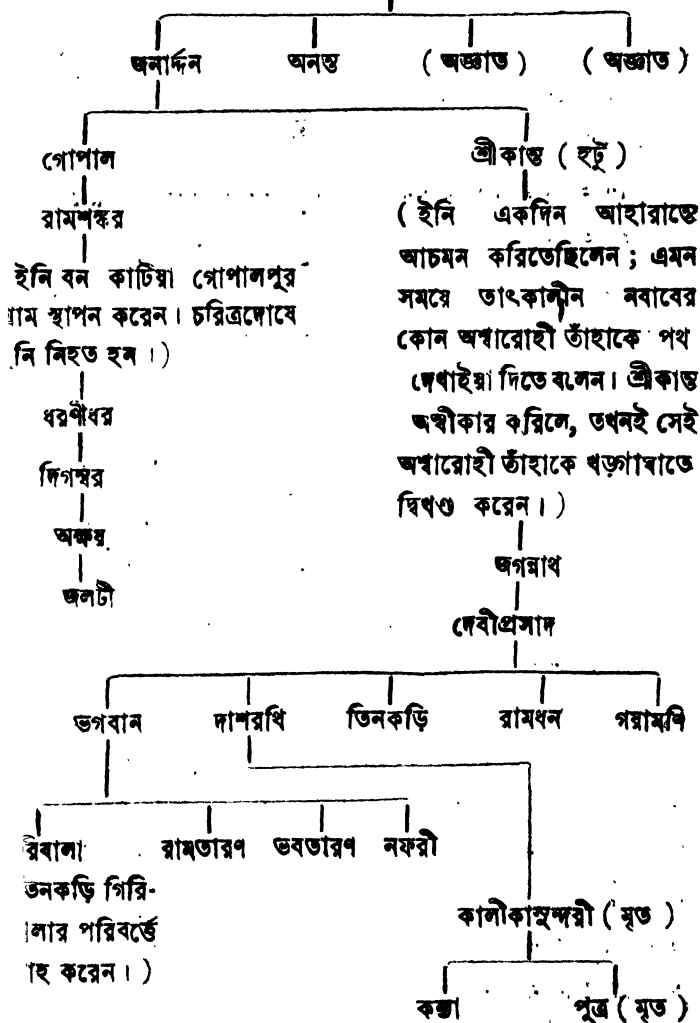 জনার্দ্দন অনন্ত ( অজ্ঞাত ) ( অজ্ঞাত )
গোপাল শ্রীকান্ত ( হটু )
রামশঙ্কর
ইনি বন কাটিয়া গোপালপুর
স্থাপন করেন। চরিত্রদোষে
নি নিহত হন।)
ধরণীধর
দিগম্বর
অক্ষয়
জলটী
( ইনি একদিন আহারান্তে
আচমন করিতেছিলেন; এমন
সময়ে তাৎকালীন নবাবের
কোন অশ্বারোহী তাঁহাকে পথ
দেখাইয়া দিতে বলেন। শ্রীকান্ত
অস্বীকার করিলে, তখনই সেই
অশ্বারোহী তাঁহাকে খড়্গাঘাতে
দ্বিখণ্ড করেন।)
জগন্নাথ
দেবীপ্রসাদ
ভগবান দাশরথি তিনকড়ি রামধন গয়ামণি
রিবালা রামতারণ ভবতারণ নফরী
তনকড়ি গিরি-
লার পরিবর্ত্তে
াহ করেন।)
কালীকাসুন্দরী ( মৃত )
কন্যা পুত্র ( মৃত )